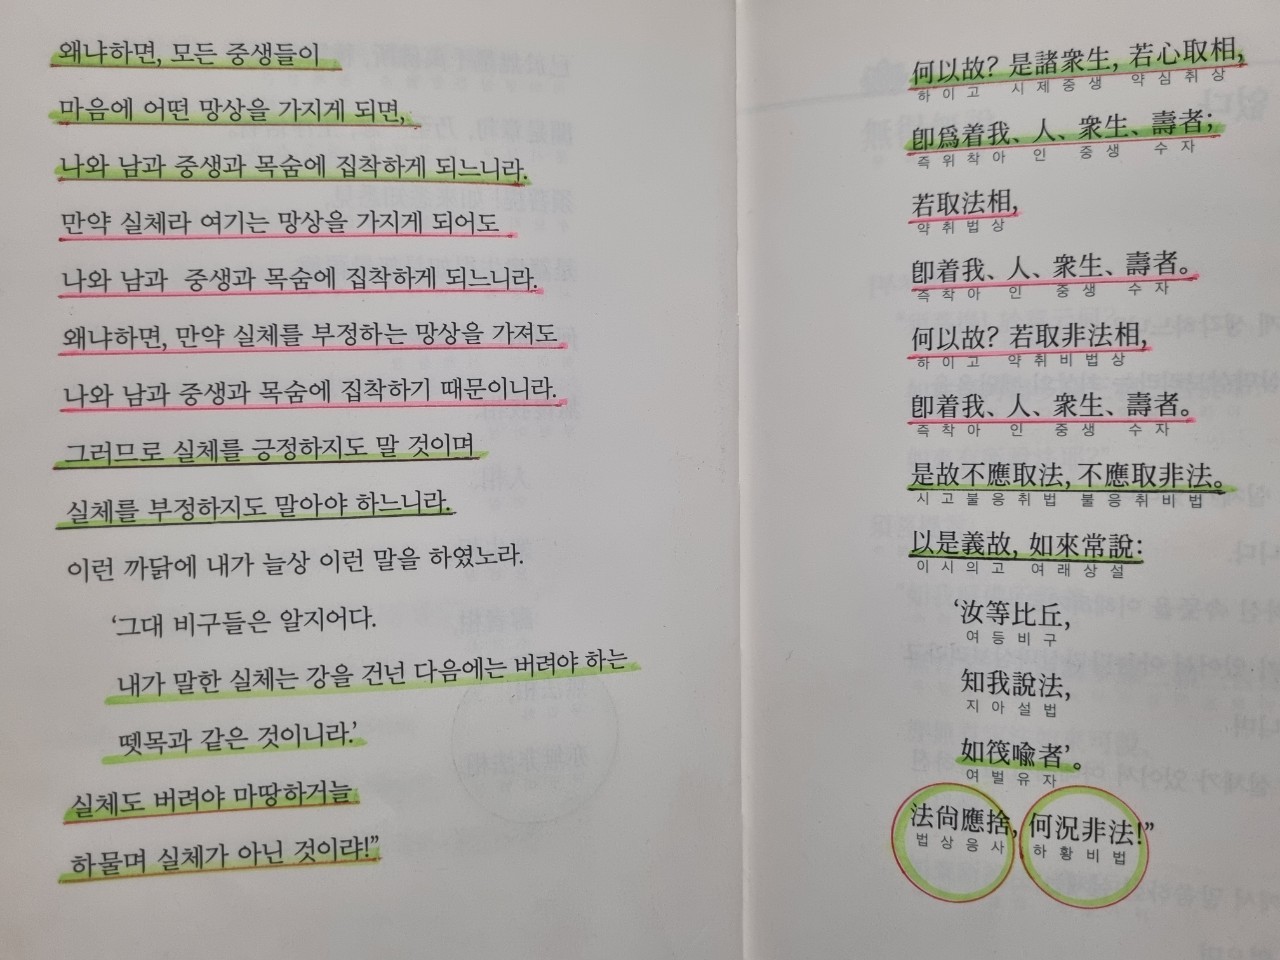 왜냐하면, 모든 중생들이
마음에 어떤 망상을 가지게 되면,
나와 남과 중생과 목숨에 집착하게 되느니라.
만약 실체라 여기는 망상을 가지게 되어도
나와 남과 중생과 목숨에 집착하게 되느니라.
왜냐하면, 만약 실체를 부정하는 망상을 가져도
나와 남과 중생과 목숨에 집착하기 때문이니라.
그러므로 실체를 긍정하지도 말 것이며
실체를 부정하지도 말아야 하느니라.
이런 까닭에 내가 늘상 이런 말을 하였노라.
‘그대 비구들은 알지어다.
내가 말한 실체는 강을 건넌 다음에는 버려야 하는
뗏목과 같은 것이니라.’
실체도 버려야 마땅하거늘
하물며 실체가 아닌 것이랴!”
何以故? 是諸衆生, 若心取相,
하이고 시제중생 약심취상
卽爲着我、人、衆生、壽者;
즉위착아 인 중생 수자
若取法相,
약취법상
卽着我、人、衆生、壽者。
즉착아 인 중생 수자
何以故? 若取非法相,
하이고 약취비법상
卽着我、人、衆生、壽者。
즉착아 인 중생 수자
是故不應取法, 不應取非法。
시고불응취법 불응취비법
以是義故, 如來常說:
이시의고 여래상설
‘汝等比丘,
여등비구
知我說法,
지아설법
如筏喩者’。
여벌유자
法尙應捨, 何況非法!”
법상응사 하황비법